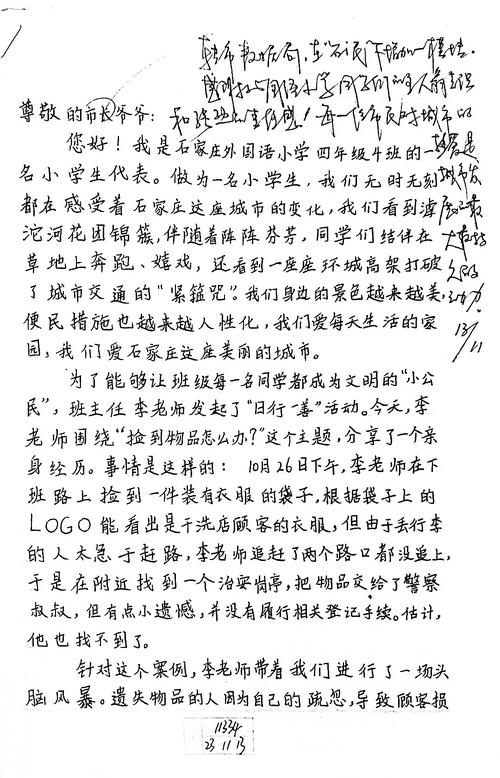 尊敬的市长爷爷：
您好！我是石家庄外国语小学四年级4班的一
名小学生代表。做为一名小学生，我们无时无刻
都在感受着石家庄这座城市的变化，我们看到滹
沱河花团锦簇，伴随着阵阵芬芳，同学们结伴在
草地上奔跑、嬉戏，还看到一座座环城高架打破
了城市交通的“紧箍咒”。我们身边的景色越来越美，
便民措施也越来越人性化，我们爱每天生活的家
园，我们爱石家庄这座美丽的城市。
为了能够让班级每一名同学都成为文明的“小公
民”，班主任李老师发起了“日行一善”活动。今天，李
老师围绕“捡到物品怎么办？”这个主题，分享了一个亲
身经历。事情是这样的：10月26日下午，李老师在下
班路上捡到一件装有衣服的袋子，根据袋子上的
LOGO能看出是干洗店顾客的衣服，但由于丢行李
的人太急于赶路，李老师追赶了两个路口都没追上，
于是在附近找到一个治安岗亭，把物品交给了警察
叔叔，但有点小遗憾，并没有履行相关登记手续。估计，
他也找不到了。
针对这个案例，李老师带着我们进行了一场头
脑风暴。遗失物品的人因为自己的疏忽，导致顾客损
13/11
11334
23 11 13